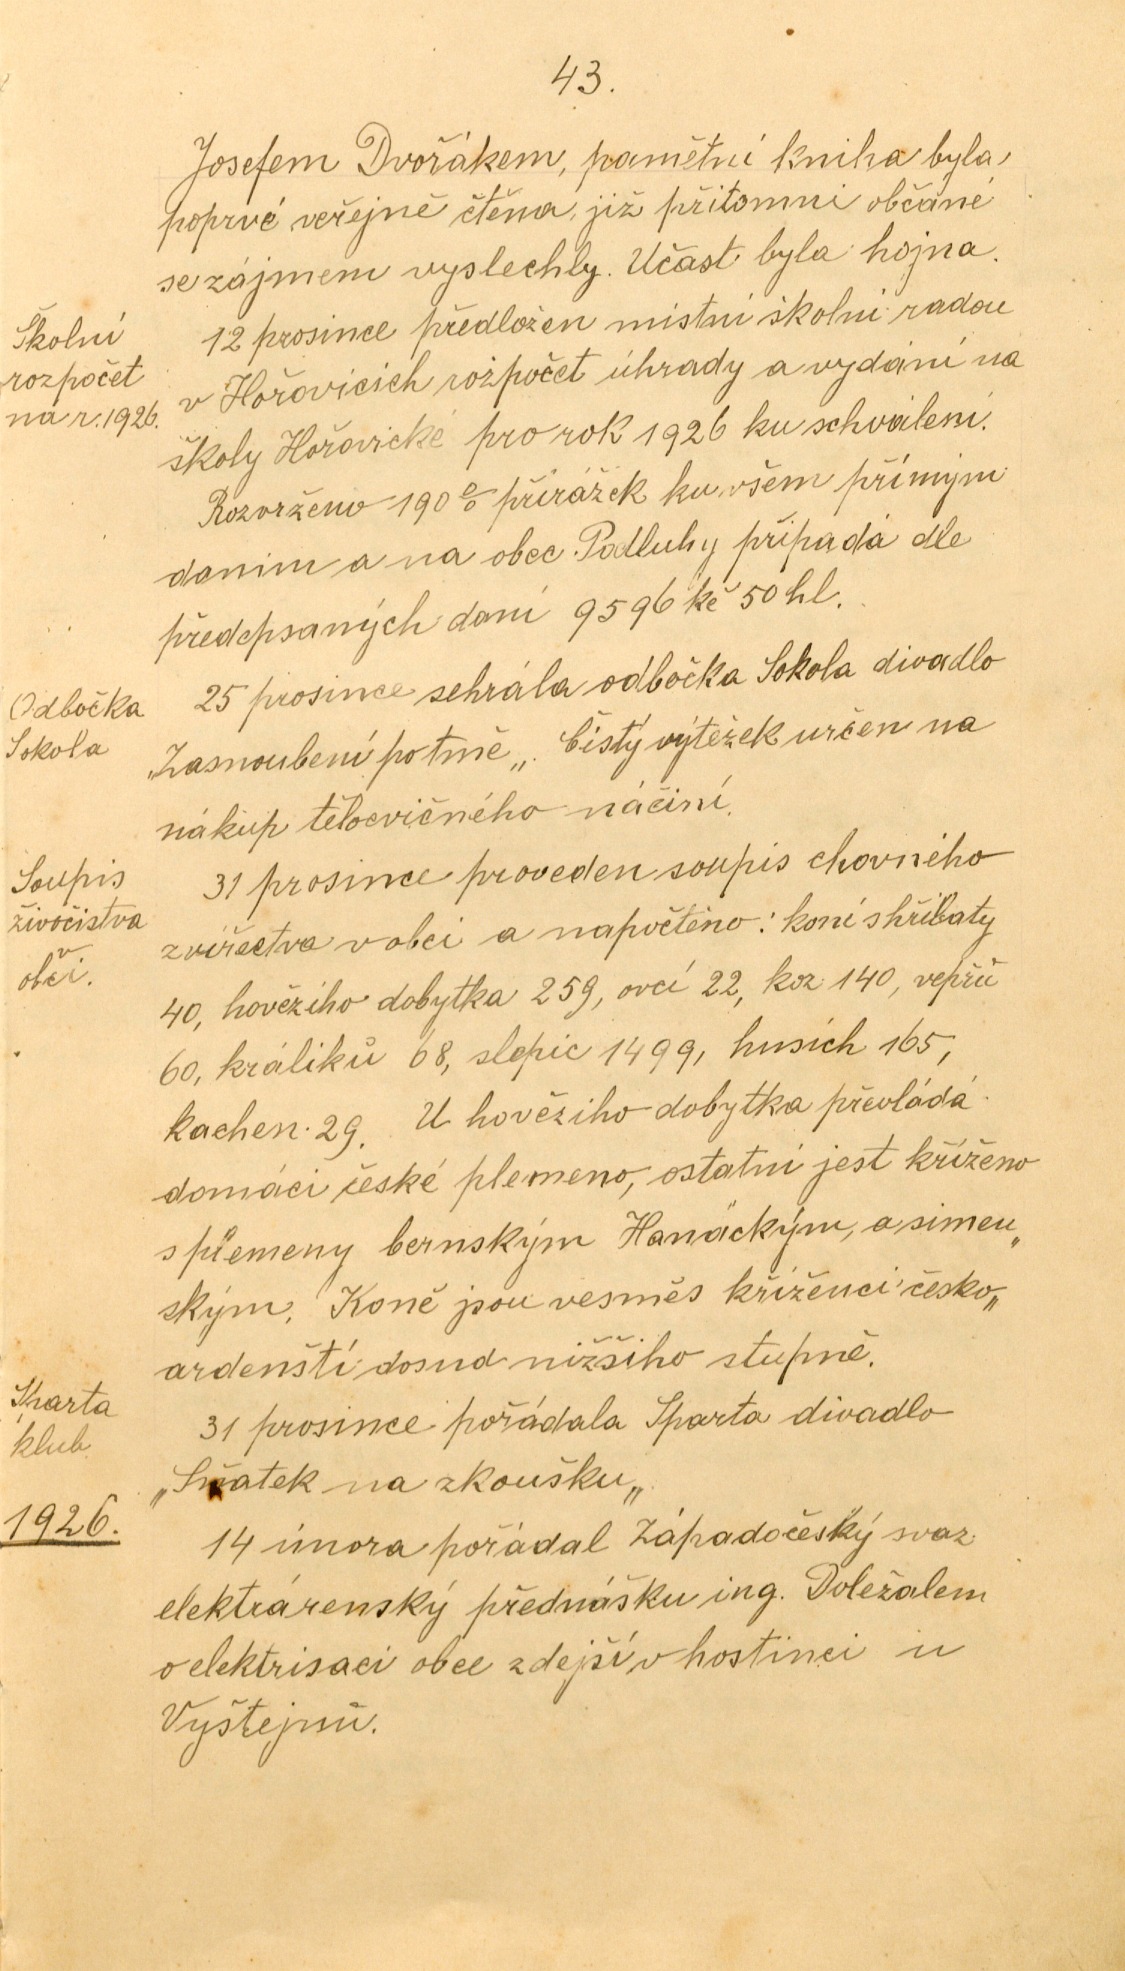 43.
Josefem Dvořákem, pamětní kniha byla
poprvé veřejně čtěna, již přitomni občané
se zájmem vyslechly. Učast byla hojna.
Školní
rozpočet
na r. 1926.
12 prosince předložen mistni školni radou
v Hořovicich rozpočet úhrady a vydání na
školy Hořovické pro rok 1926 ku schválení.
Rozvrženo 190 % přirážek ku všem přímým
danim a na obec Podluhy připadá dle
předepsaných daní 9596 kč 50 hl.
Odbočka
Sokola
25 prosince sehrála odbočka Sokola divadlo
„Zasnoubení po tmě„. Čistý výtěžek určen na
nákup tělocvičného náčiní.
Soupis
živočistva
v
obci.
31 prosince proveden soupis chovného
zvířectva v obci a napočteno: koní s hříbaty
40, hovězího dobytka 259, ovcí 22, koz 140, vepřů
60, králiků 68, slepic 1499, husích 165,
kachen 29. U hověziho dobytka převládá
domáci české plemeno, ostatní jest kříženo
s plemeny bernským Hanáckým, a simen„
ským. Koně jsou vesměs kříženci česko„
ardenští dosud nižšiho stupně.
Sparta
klub
31 prosince pořádala Sparta divadlo
„Sňatek na zkoušku„
1926.
14 února pořádal Západočeský svaz
elektrárenský přednášku ing. Doležalem
o elektrisaci obce zdejší v hostinci u
Vyštejnů.